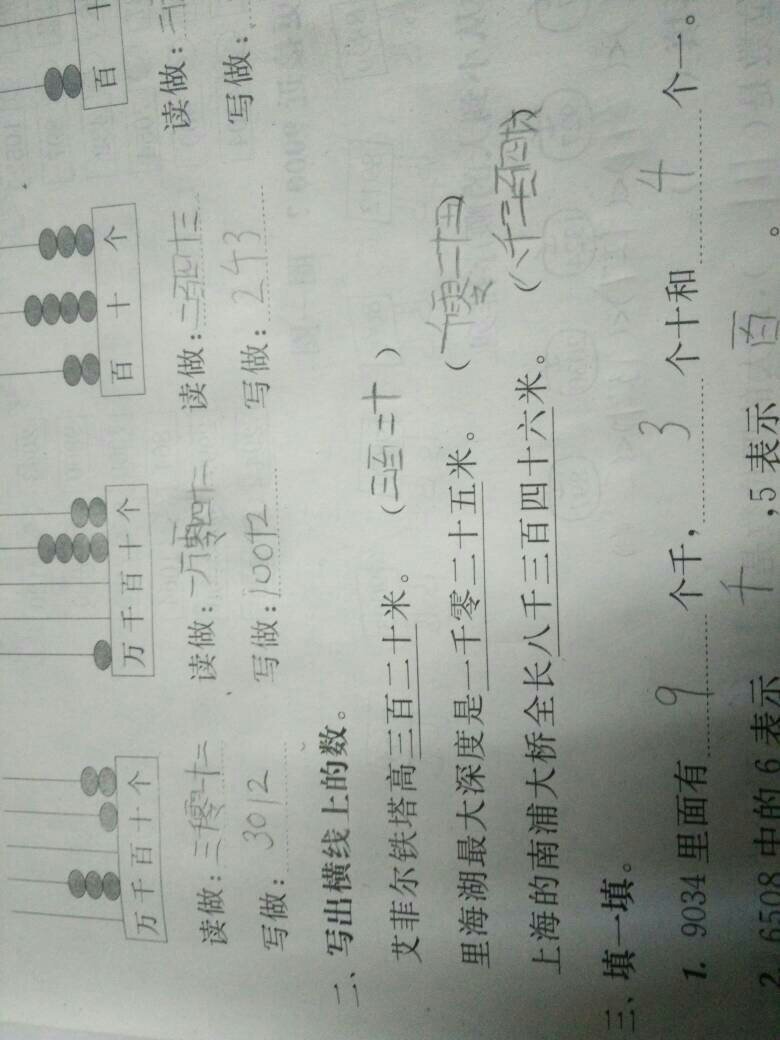 万 千 百 十 个
万 千 百 十 个
百 十 个
百 十
读做：三千零一十二
读做：一万零四十二
读做：二百四十三
读做：
写做：3012
写做：10012
写做：243
写做：
二、写出横线上的数。
艾菲尔铁塔高三百二十米。（三百二十）
里海湖最大深度是一千零二十五米。（一千零二十五）
上海的南浦大桥全长八千三百四十六米。（八千三百四十六）
三、填一填。
1. 9034里面有 9 个千， 3 个十和 4 个一。
2. 6508中的6表示 千 ，5表示 百 。